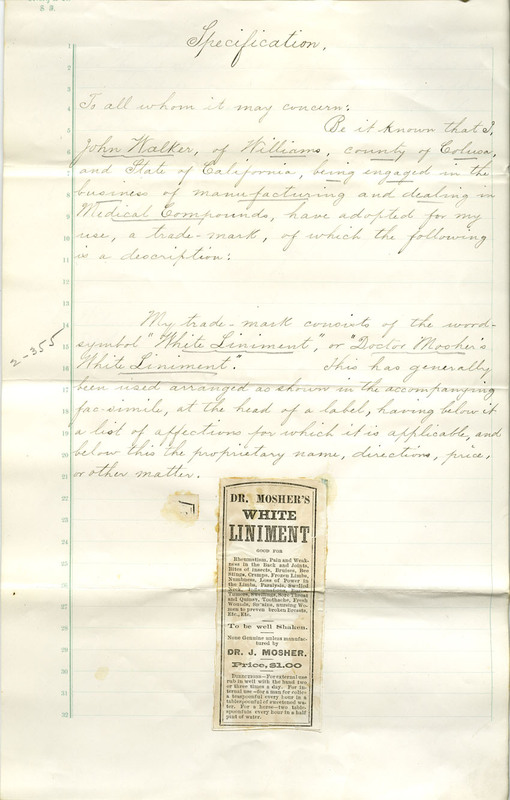 Specification.
To all whom it may concern:
Be it known that I,
John Walker, of Williams, county of Colusa,
and State of California, being engaged in the
business of manufacturing and dealing in
Medical Compounds, have adopted for my
use, a trade-mark, of which the following
is a description:
My trade-mark consists of the word-
symbol "White Liniment", or "Doctor Mosher's
White Liniment". This has generally
been used arranged as shown in the accompanying
fac-simile, at the head of a label, having below it
a list of affections for which it is applicable, and
below this the proprietary name, directions, price,
or other matter.
2-355
1
2
3
4
5
6
7
8
9
10
11
12
13
14
15
16
17
18
19
20
21
22
23
24
25
26
27
28
29
30
31
32
DR. MOSHER'S
WHITE
LINIMENT
GOOD FOR
Rheumatism, Pain and Weak-
ness in the Back and Joints,
Bites of Insects, Bruises, Bee
Stings, Cramps, Frozen Limbs,
Numbness, Loss of Power in
the Limbs, Paralysis, Swelled
Neck,
Tumors, Swellings, Sore Throat
and Quinsy, Toothache, Fresh
Wounds, Sprains, nursing Wo-
men to prevent broken Breasts,
Etc., Etc.
To be well Shaken.
None Genuine unless manufac-
tured by
DR. J. MOSHER.
Price, $1.00
DIRECTIONS—For external use
rub in well with the hand two
or three times a day. For in-
ternal use—for a man for colic:
a teaspoonful every hour in a
tablespoonful of sweetened wa-
ter. For a horse—two table-
spoonfuls every hour in a half
pint of water.